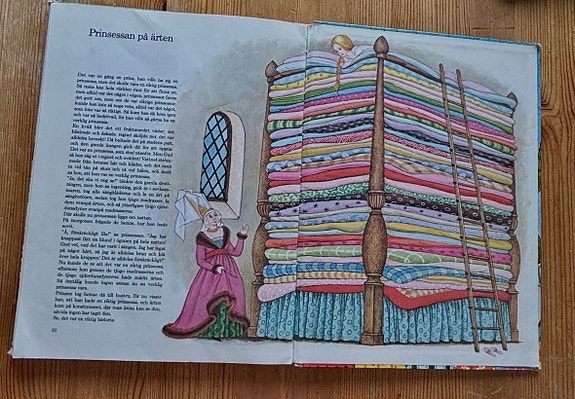 Prinsessan på ärten
Det var en gång en prins, han ville ha sig en
prinsessa, men det skulle vara en riktig prinsessa.
Så reste han hela världen runt för att finna en,
men alltid var det något i vägen, prinsessor fanns
det gott om, men om de var riktiga prinsessor,
kunde han inte så noga veta, alltid var det något,
som inte var så riktigt. Så kom han då hem igen
och var så bedrövad, för han ville så gärna ha en
verklig prinsessa.
En kväll blev det ett fruktansvärt väder, det
blixtrade och åskade, regnet skvalade ner, det var
alldeles hemskt! Då bultade det på stadens port,
och den gamle kungen gick då för att öppna.
Det var en prinsessa, som stod utanför. Men Gud
så hon såg ut i regnet och ovädret! Vattnet
från hennes hår och kläder, och det
in vid tån på skon och ut vid hälen, och
sa hon, att hon var en verklig prinsessa.
"Ja, det ska vi nog se!" tänkte den gamla
ningen, men hon sa ingenting, gick in i
maren, tog alla sängkläderna och la en ärt på
sängbotten, sedan tog hon tjugo madrasser, la
dem ovanpå ärten, och så ytterligare tjugo ejder-
dunsdynor ovanpå madrasserna.
Där skulle nu prinsessan ligga om natten.
På morgonen frågade de henne, hur hon hade
sovit.
"Å, förskräckligt illa!" sa prinsessan. "Jag har
knappast fått en blund i ögonen på hela natten!
Gud vet, vad det har varit i sängen. Jag har legat
på något hårt, så jag är alldeles brun och blå
över hela kroppen! Det är alldeles förskräckligt!"
Nu kunde de se att det var en riktig prinsessa,
eftersom hon genom de tjugo madrasserna och
de tjugo ejderdunsdynorna hade märkt ärten.
Så ömtålig kunde ingen annan än en verklig
prinsessa vara.
Prinsen tog henne då till hustru, för nu visste
han, att han hade en riktig prinsessa, och ärten
kom på konstkammaret, där man ännu kan se den,
såvida ingen har tagit den.
Se, det var en riktig historia.